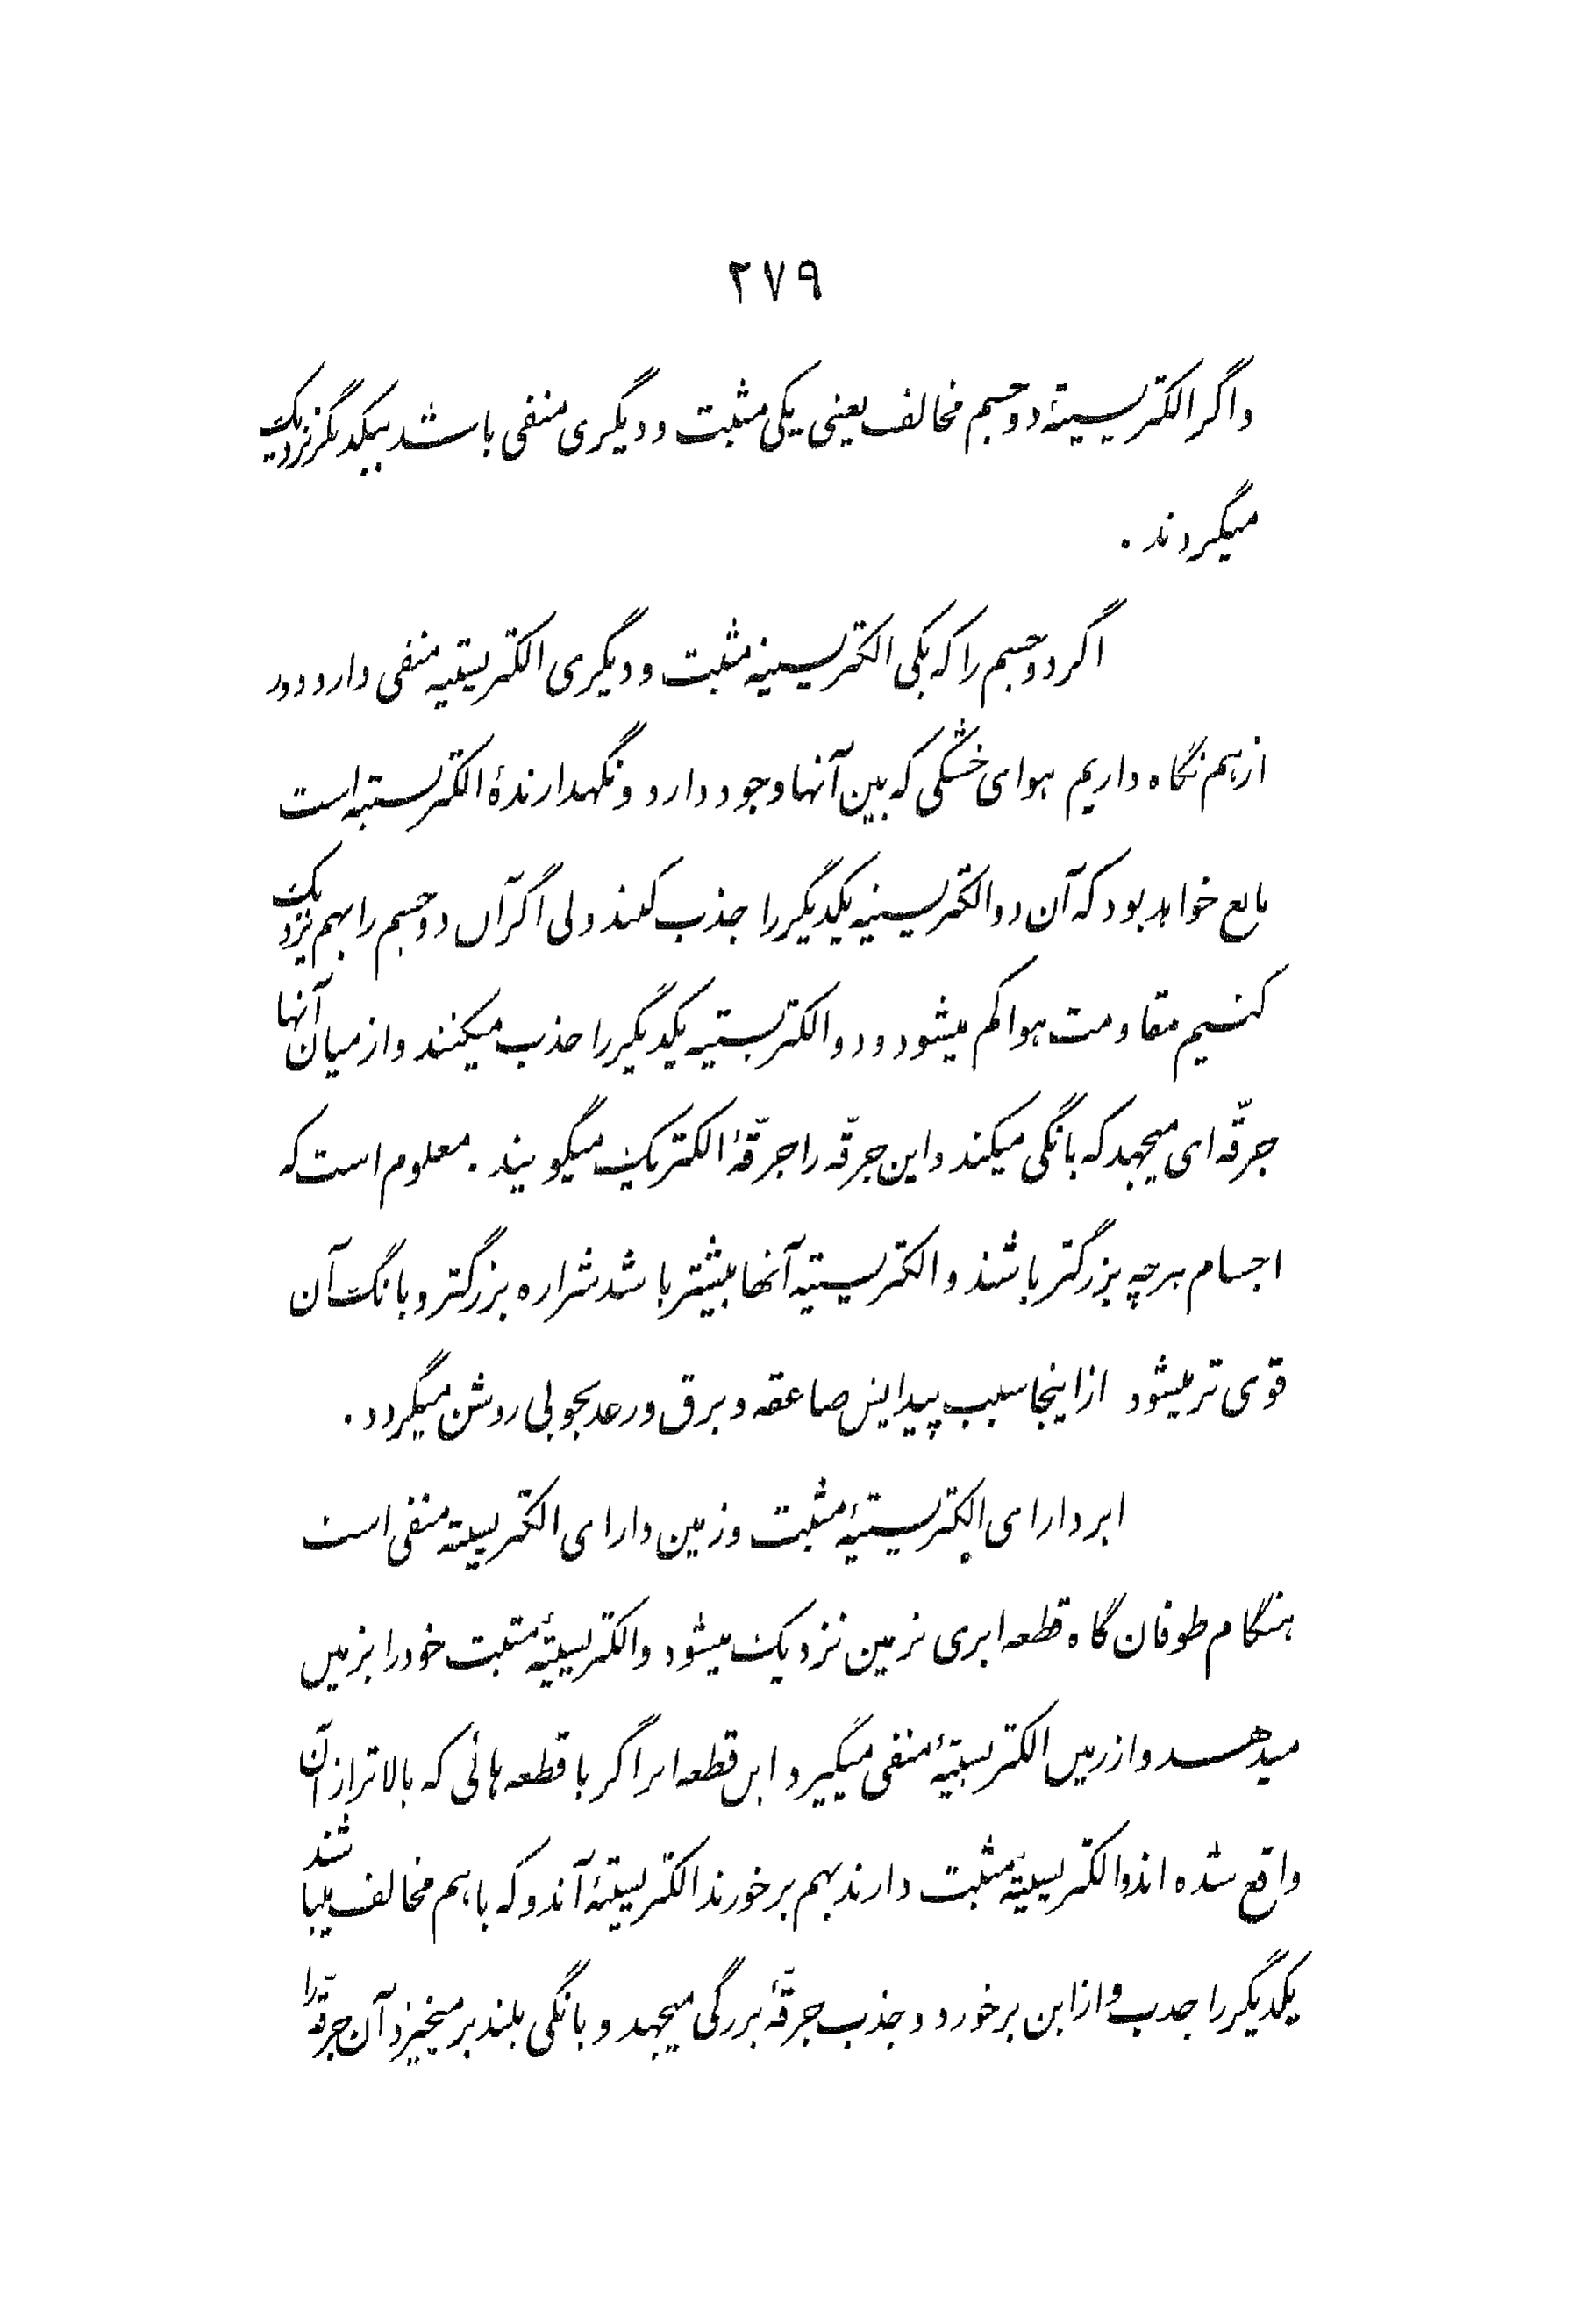 ۲۷۹
واگر الکتریسیتهٔ دو جسم مخالف یعنی یکی مثبت و دیگری منفی باشد بیکدیگر نزدیک
میگردند .
اگر دو جسم را که یکی الکتریسیته مثبت و دیگری الکتریسیته منفی دارد دور
از هم نگاه داریم هوای خشکی که بین آنها وجود دارد و نگهدارندهٔ الکتریسیته است
مانع خواهد بود که آن دو الکتریسیته یکدیگر را جذب کنند ولی اگر آن دو جسم را بهم نزدیک
کنیم مقاومت هوا کم میشود و دو الکتریسیته یکدیگر را جذب میکنند و از میان آنها
جرقّه ای میجهد که بانگی میکند و این جرقّه را جرقّهٔ الکتریک میگویند . معلوم است که
اجسام هرچه بزرگتر باشند و الکتریسیته آنها بیشتر باشد شراره بزرگتر و بانگ آن
قوی تر میشود از اینجا سبب پیدایش صاعقه و برق و رعد بخوبی روشن میگردد .
ابر دارای الکتریسیتهٔ مثبت و زمین دارای الکتریسیته منفی است
هنگام طوفان گاه قطعه ابری بزمین نزدیک میشود و الکتریسیتهٔ مثبت خود را بزمین
میدهد و از زمین الکتریسیتهٔ منفی میگیرد این قطعه ابر اگر با قطعه هائی که بالاتر از آن
واقع شده اند و الکتریسیتهٔ مثبت دارند بهم برخورند الکتریسیتهٔ آندو که با هم مخالف میباشند
یکدیگر را جذب و از این برخورد و جذب جرقّهٔ بزرگی میجهد و بانگی بلند بر میخیزد آن جرقّه را